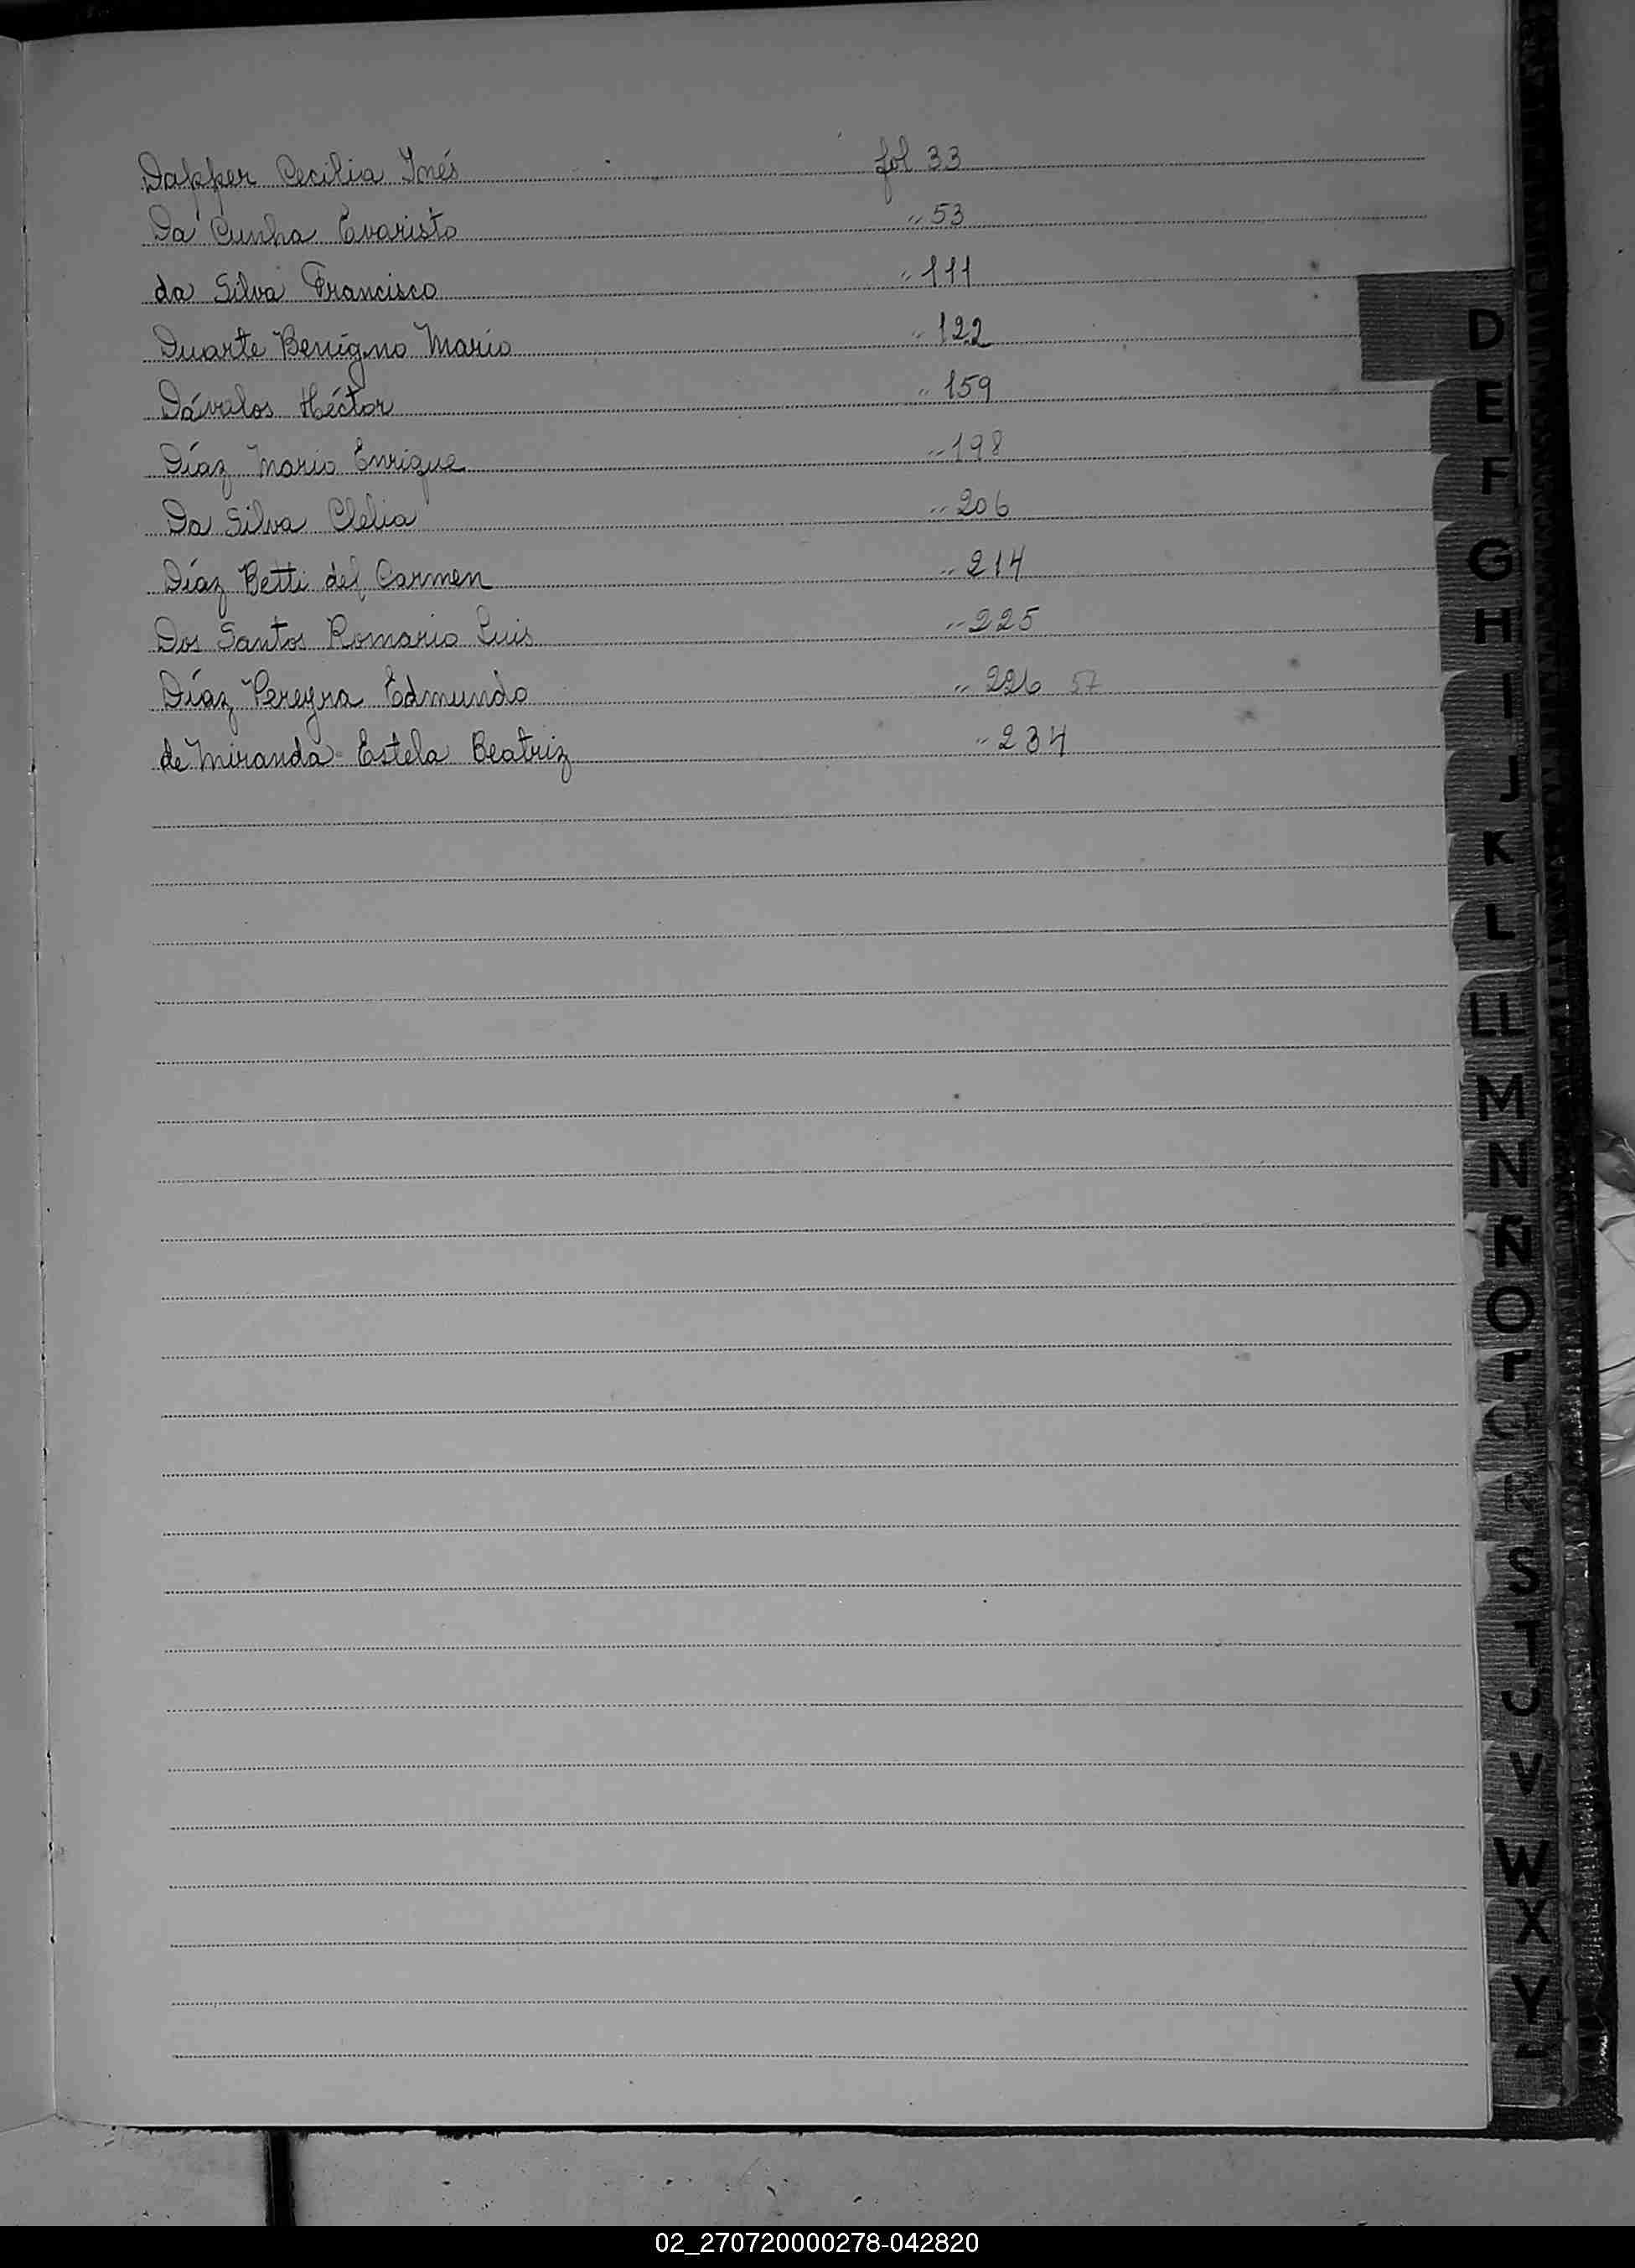 Dapper Cecilia Inés fol 33
Da Cunha Evaristo " 53
da Silva Francisco " 111
Duarte Benigno Mario " 122
Dávalos Héctor " 159
Díaz Mario Enrique " 198
Da Silva Clelia " 206
Díaz Betti del Carmen " 214
Dos Santos Romario Luis " 225
Díaz Pereyra Edmundo " 226 57
de Miranda Estela Beatriz " 234
D
E
F
G
H
I
J
K
L
LL
M
N
Ñ
O
P
Q
R
S
T
U
V
W
X
Y
02_270720000278-042820